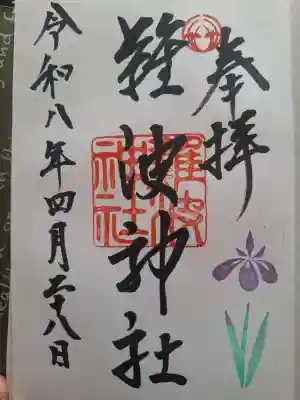 奉拝
難波神社
難波
神社
令和八年四月二十八日